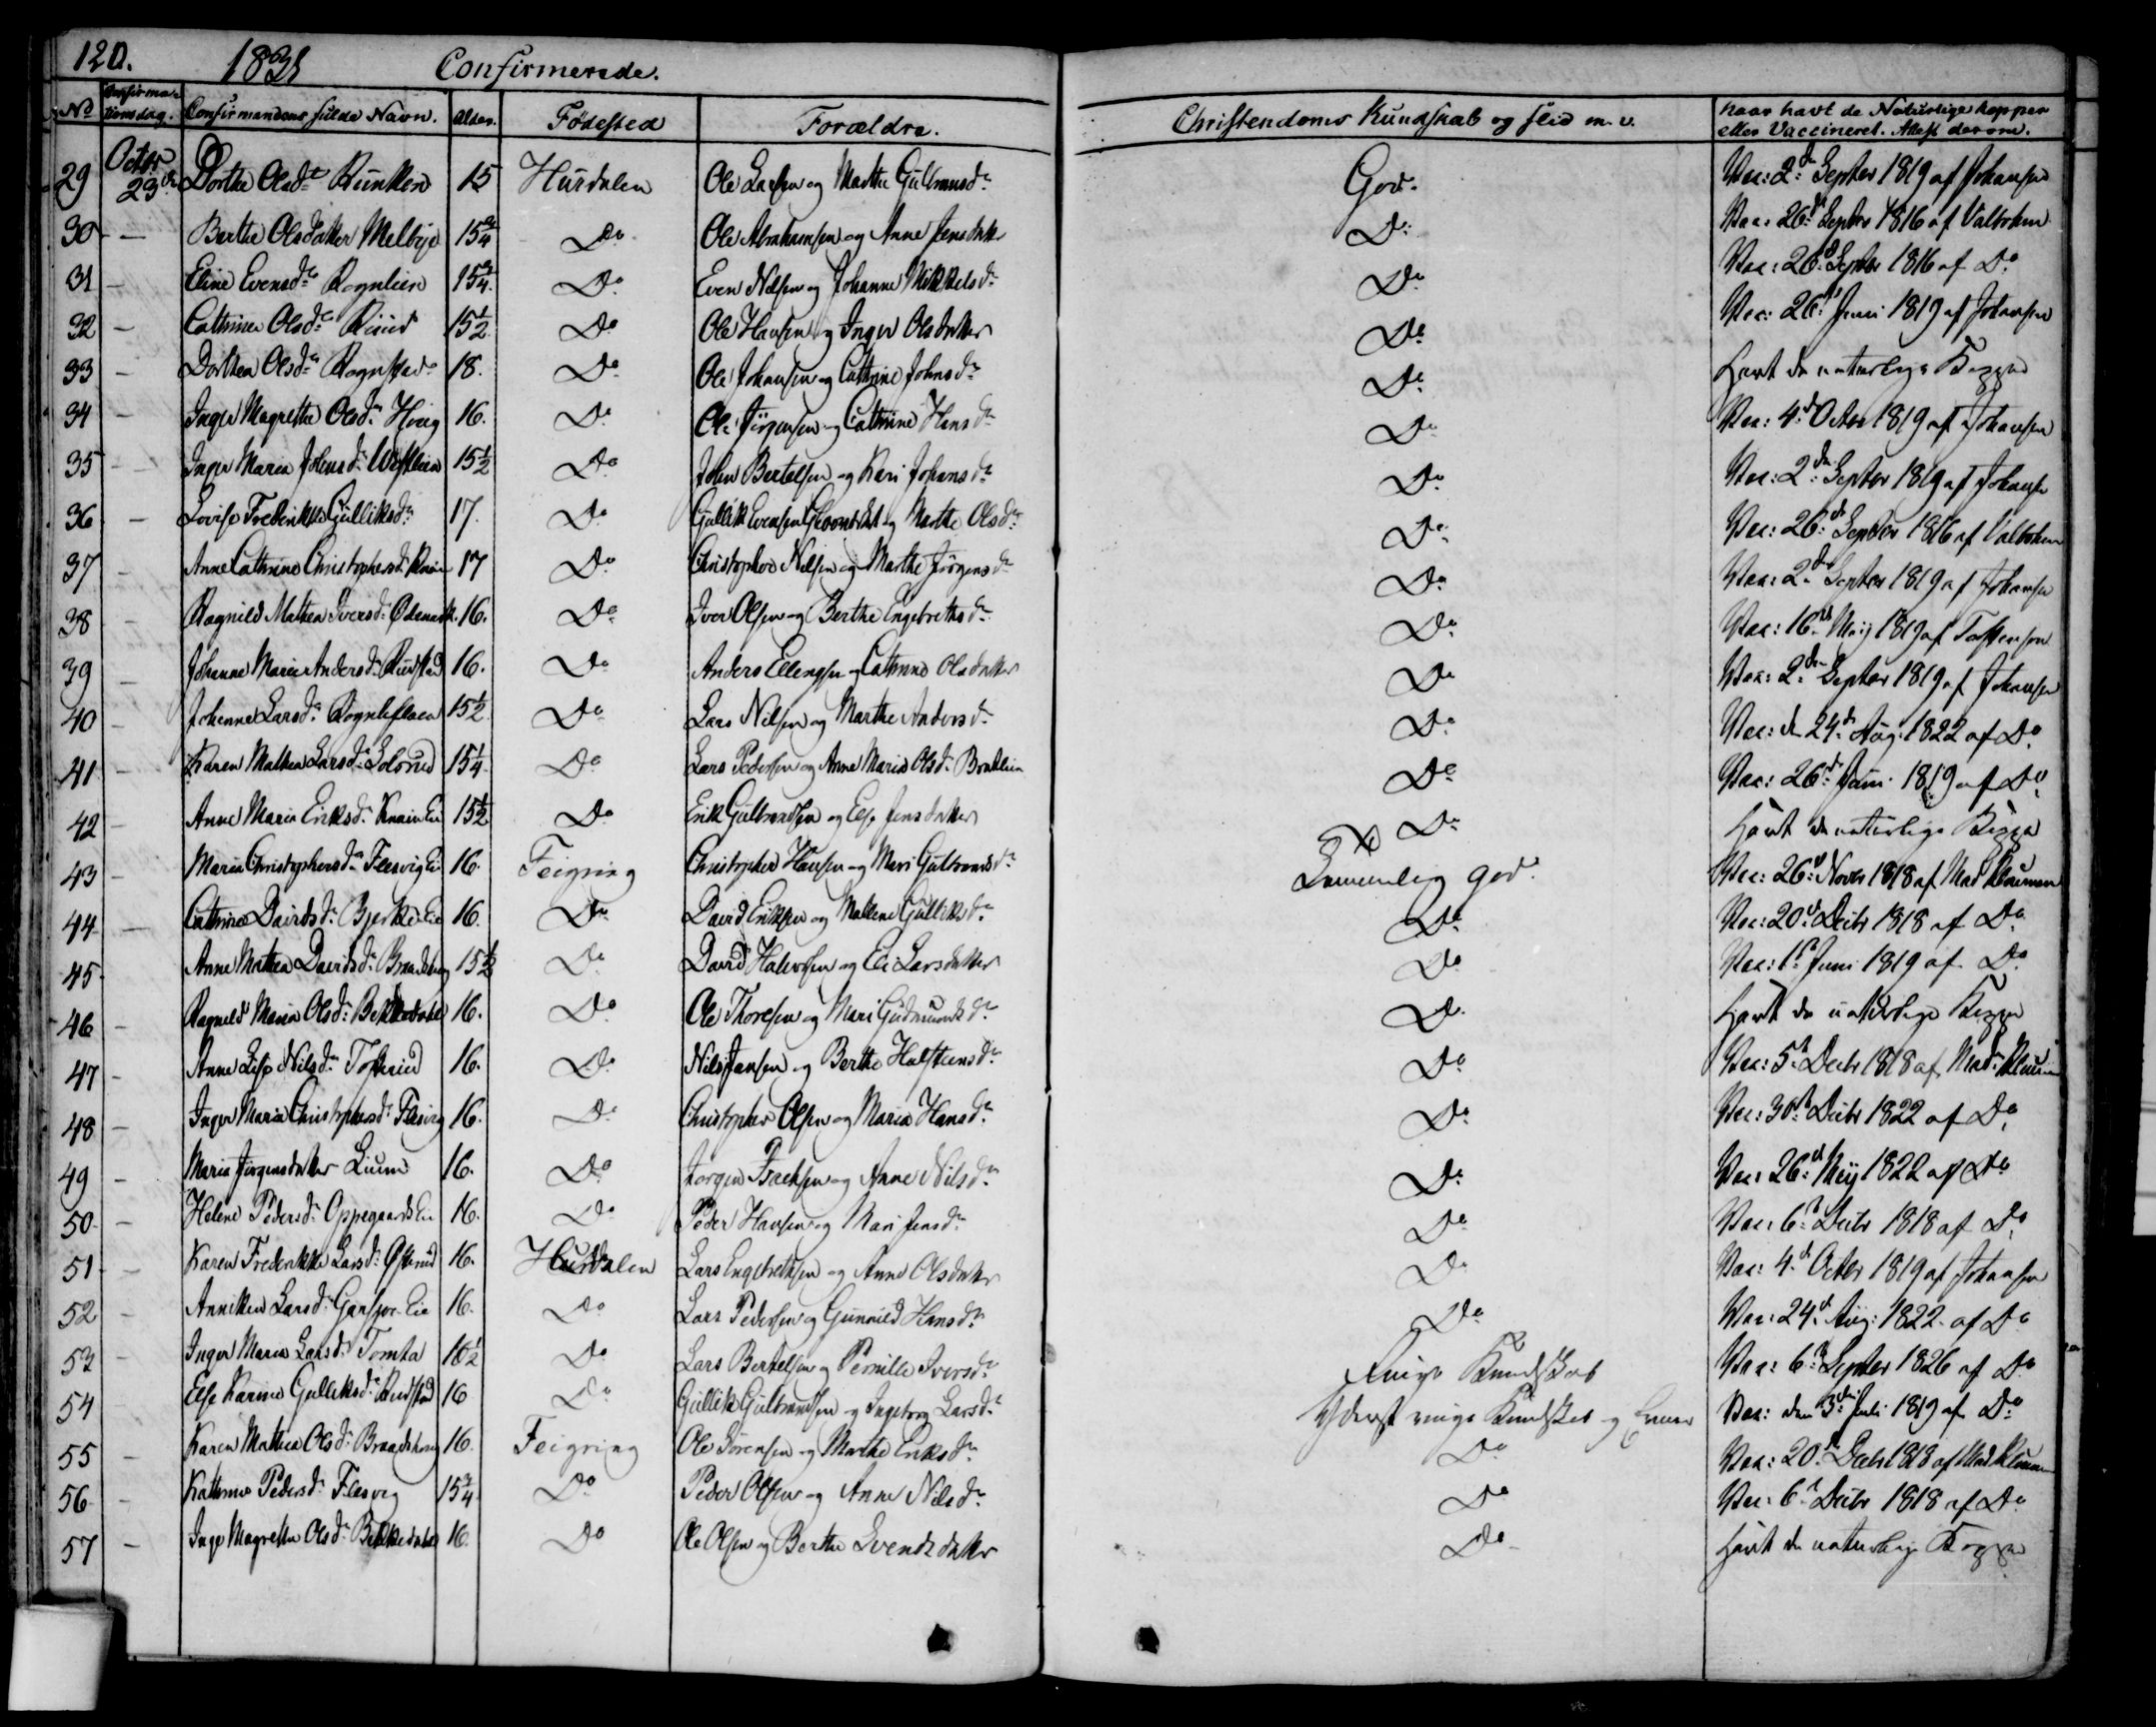 120. 1831 Confirmerede.
No Confirmationsdag. Confirmandens fulde Navn. Alder. Fødested Forældre. Christendoms Kundskab og flid m. v. Naar havt de Naturlige kopper eller Vaccineret. Attest derom.
29 Octbr 23de Dorthe Olsdr Runken 15 Hurdalen Ole Larsen og Marthe Gulbransdr God. Vac: 2den Septbr 1819 af Johansen
30 — Berthe Olsdatter Melbye 15 3/4 Do Ole Abrahamsen og Anne Jensdatter Do Vac: 26de Septbr 1816 af Valboken
31 — Eline Evensdr Rognlien 15 3/4 Do Even Nilsen og Johanne Mikkelsdr Do Vac: 26d Septbr 1816 af Do
32 — Cathrine Olsdr Ruud 15 1/2 Do Ole Hansen og Inger Olsdatter Do Vac: 26d Juni 1819 af Johansen
33 — Dorthea Olsdr Rognstad 18. Do Ole Johansen og Cathrine Johnsdr Do Havt de naturlige Kopper
34 — Inger Magrethe Olsdr Houg 16. Do Ole Jörgensen og Cathrine Hansdr Do Vac: 4d Octbr 1819 af Johansen
35 — Inger Maria Johnsdr Westlien 15 1/2 Do John Bertelsen og Kari Johansdr Do Vac: 2den Septbr 1819 af Johansen
36 — Lovise Fredrikke Gulliksdr 17. Do Gullik Evensen og Marthe Olsdr Do Vac: 26de Septbr 1816 af Valboken
37 — Anne Cathrine Christophersdr 17 Do Christopher Nilsen og Marthe Jörgensdr Do Vac: 2d Septbr 1819 af Johansen
38 — Ragnild Mathea Iversdr Ødemark. 16. Do Iver Olsen og Berthe Engebrethsdr Do Vac: 16de May 1819 af Torstensen
39 — Johanne Marie Andersdr Rudstad 16. Do Anders Ellengsen og Cathrine Olsdatter Do Vac: 2den Septbr 1819 af Johansen
40 — Johanne Larsdr 15 1/2 Do Lars Nilsen og Marthe Andersdr Do Vac: d. 24de Aug. 1822 af Do
41 — Karen Mathea Larsdr Solerud 15 1/4 Do Lars Pedersen og Anne Maria Olsdr Bratlien Do Vac: 26d Juni 1819 af Do
42 — Anne Maria Eriksdr Knain Eie 15 1/2 Do Erik Gulbrandsen og Else Jensdatter Do Havt de naturlige Kopper
43 — Maria Christophersdr Flesvig Ei 16. Feigring Christopher Hansen og Mari Gulbrandsdr Temmelig god. Vac: 26d Novbr 1818 af Mad Klouman
44 — Cathrine Davidsdr Bjerke Eie 16. Do David Eriksen og Mallene Gulliksdr Do Vac: 20d Decbr 1818 af Do
45 Anne Mathea Davidsdr Braadehoug 15 1/2 Do David Halvorsen og Eli Larsdatter Do Vac: 1st Juni 1819 af Do
46 — Ragnild Maria Olsdr Bekkedahl 16. Do Ole Thoresen og Mari Gudmundsdr Do Havt de naturlige Kopper
47 — Anne Lise Nilsdr Tosterud 16. Do Nils Jansen og Berthe Halstensdr Do Vac: 5t Decbr 1818 af Mad.
48 — Inger Maria Christophersdr Flesvig 16. Do Christopher Olsen og Maria Hansdr Do Vac: 30te Decbr 1822 af Do
49 — Maria Jörgensdatter Lium 16. Do Jörgen Isachsen og Anne Nilsdr Do Vac: 26d May 1822 af Do
50 — Helene Pedersdr Oppegaards Eie 16. Do Peder Hansen og Mari Jensdr Do Vac: 6t Decbr 1818 af Do
51 — Karen Fredrikke Larsdr Østerud 16. Hurdalen Lars Engebrethsen og Anne Olsdatter Do Vac: 4d Octbr 1819 af Johansen
52 — Anniken Larsdr Garsjøe Eie 16. Do Lars Pedersen og Gunnild Hansdr Do Vac: 24d Aug. 1822 af Do
53 — Inger Maria Larsdr Tomta 16 1/2 Do Lars Bertelsen og Pernille Iversdr Ringe Kundskab Vac: 6t Septbr 1826 af Do
54 — Else Karine Gulliksdr Rudstad 16 Do Gullik Gulbrandsen og Ingeborg Larsdr Yderst ringe Kundskab og Evner Vac: den 3die Juli 1819 af Do
55 — Karen Mathea Olsdr Braadehoug 16. Feigring Ole Sörensen og Marthe Eriksdr Do Vac: 20d Decbr 1818 af Mad Klouman
56 — Kathrine Pedersdr Flesvig 15 3/4 Do Peder Olsen og Anne Nilsdr Do Vac: 6t Decbr 1818 af Do
57 — Inge Magrethe Olsdr Bekkedahl 16. Do Ole Olsen og Berthe Svendsdatter Do Havt de naturlige Kopper